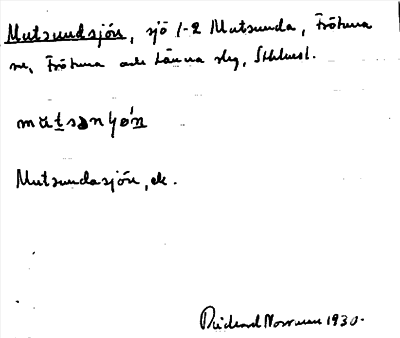 Mutsundsjön, sjö 1-2 Mutsunda, Frötuna
sn, Frötuna och Länna slg, Sthlmsl.
mùtsɔnɧø'n
Mutsundasjön, ek.
Richard Norrman 1930.